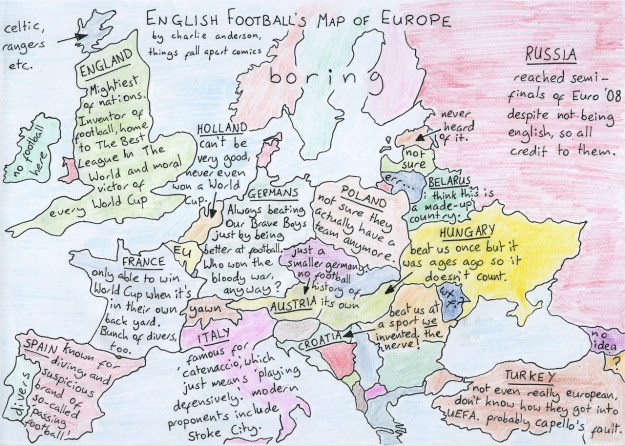 ENGLISH FOOTBALL'S MAP OF EUROPE
by charlie anderson,
things fall apart comics
celtic,
rangers
etc.
ENGLAND
Mightiest
of nations.
Inventor of
football, home
to The Best
League In The
World and moral
victor of
every World Cup
no football
here
boring
RUSSIA
reached semi-
finals of Euro '08
despite not being
english, so all
credit to them.
never
heard
of it.
not
sure
er
BELARUS
i think this is
a made-up
country.
HOLLAND
can't be
very good,
never even
won a World
Cup.
GERMANS
Always beating
Our Brave Boys
just by being
better at football.
Who won the
bloody war,
anyway?
POLAND
not sure they
actually have a
team anymore.
HUNGARY
beat us once but it
was ages ago so it
doesn't count.
EU
FRANCE
only able to win
World Cup when it's
in their own
back yard.
Bunch of divers,
too.
just a
smaller germany,
no football
history of
its own
AUSTRIA
yawn
ITALY
famous for
'catenaccio', which
just means 'playing
defensively'. modern
proponents include
Stoke City.
CROATIA
beat us at
a sport we
invented. the
nerve!
SPAIN known for
diving, and
suspicious
brand of
so-called
passing
football!
divers
no
idea
?
TURKEY
not even really european.
don't know how they got into
UEFA. probably capello's fault.